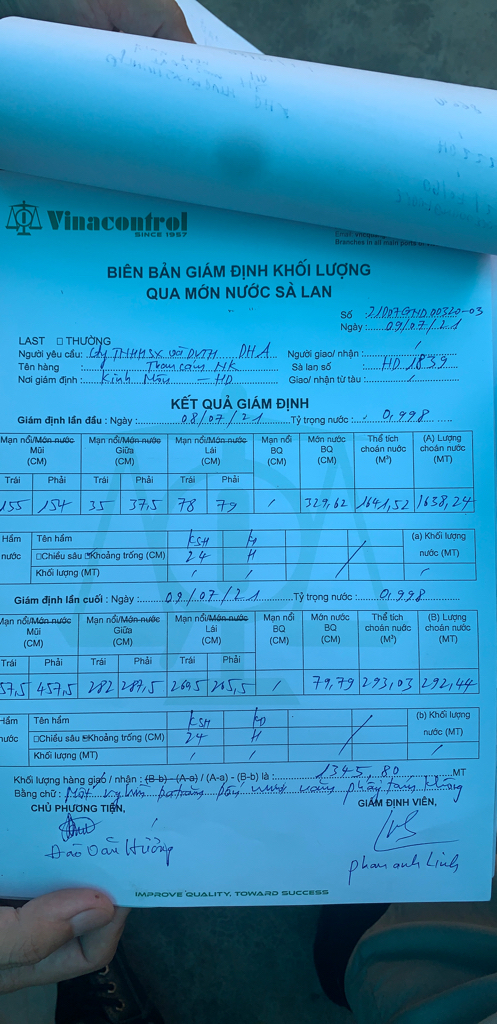 Vinacontrol
SINCE 1957
Branches in all main ports
BIÊN BẢN GIÁM ĐỊNH KHỐI LƯỢNG
QUA MỚN NƯỚC SÀ LAN
Số :
Ngày : 09/07/21
LAST □ THƯỜNG
Người yêu cầu: Cty TNHH SX và DVTH DHA Người giao/ nhận : /
Tên hàng : Than cám NK Sà lan số : HD 1839
Nơi giám định : Kinh Môn - HD Giao/ nhận từ tàu : /
KẾT QUẢ GIÁM ĐỊNH
Giám định lần đầu : Ngày : 08/07/21 Tỷ trọng nước : 0,998
Mạn nổi/Mớn nước Mạn nổi/Mớn nước Mạn nổi/Mớn nước Mạn nổi Mớn nước Thể tích (A) Lượng
Mũi Giữa Lái BQ BQ choán nước choán nước
(CM) (CM) (CM) (CM) (CM) (M³) (MT)
Trái Phải Trái Phải Trái Phải
155 154 35 37,5 78 79 / 329,62 1641,52 1638,24
Hầm Tên hầm KSH KĐ (a) Khối lượng
nước □Chiều sâu Khoảng trống (CM) 24 H nước (MT)
Khối lượng (MT) / / /
Giám định lần cuối : Ngày : 09/07/21 Tỷ trọng nước : 0,998
Mạn nổi/Mớn nước Mạn nổi/Mớn nước Mạn nổi/Mớn nước Mạn nổi Mớn nước Thể tích (B) Lượng
Mũi Giữa Lái BQ BQ choán nước choán nước
(CM) (CM) (CM) (CM) (CM) (M³) (MT)
Trái Phải Trái Phải Trái Phải
57,5 457,5 282 287,5 269,5 265,5 / 79,79 293,03 292,44
Hầm Tên hầm KSH KĐ (b) Khối lượng
nước □Chiều sâu Khoảng trống (CM) 24 H nước (MT)
Khối lượng (MT) / / /
Khối lượng hàng giao / nhận : (B-b) - (A-a) / (A-a) - (B-b) là : 1345,80 MT
Bằng chữ : Một nghìn ba trăm bốn mươi năm phẩy tám không
CHỦ PHƯƠNG TIỆN, GIÁM ĐỊNH VIÊN,
Đào Văn Hưởng phan anh Linh
IMPROVE QUALITY, TOWARD SUCCESS